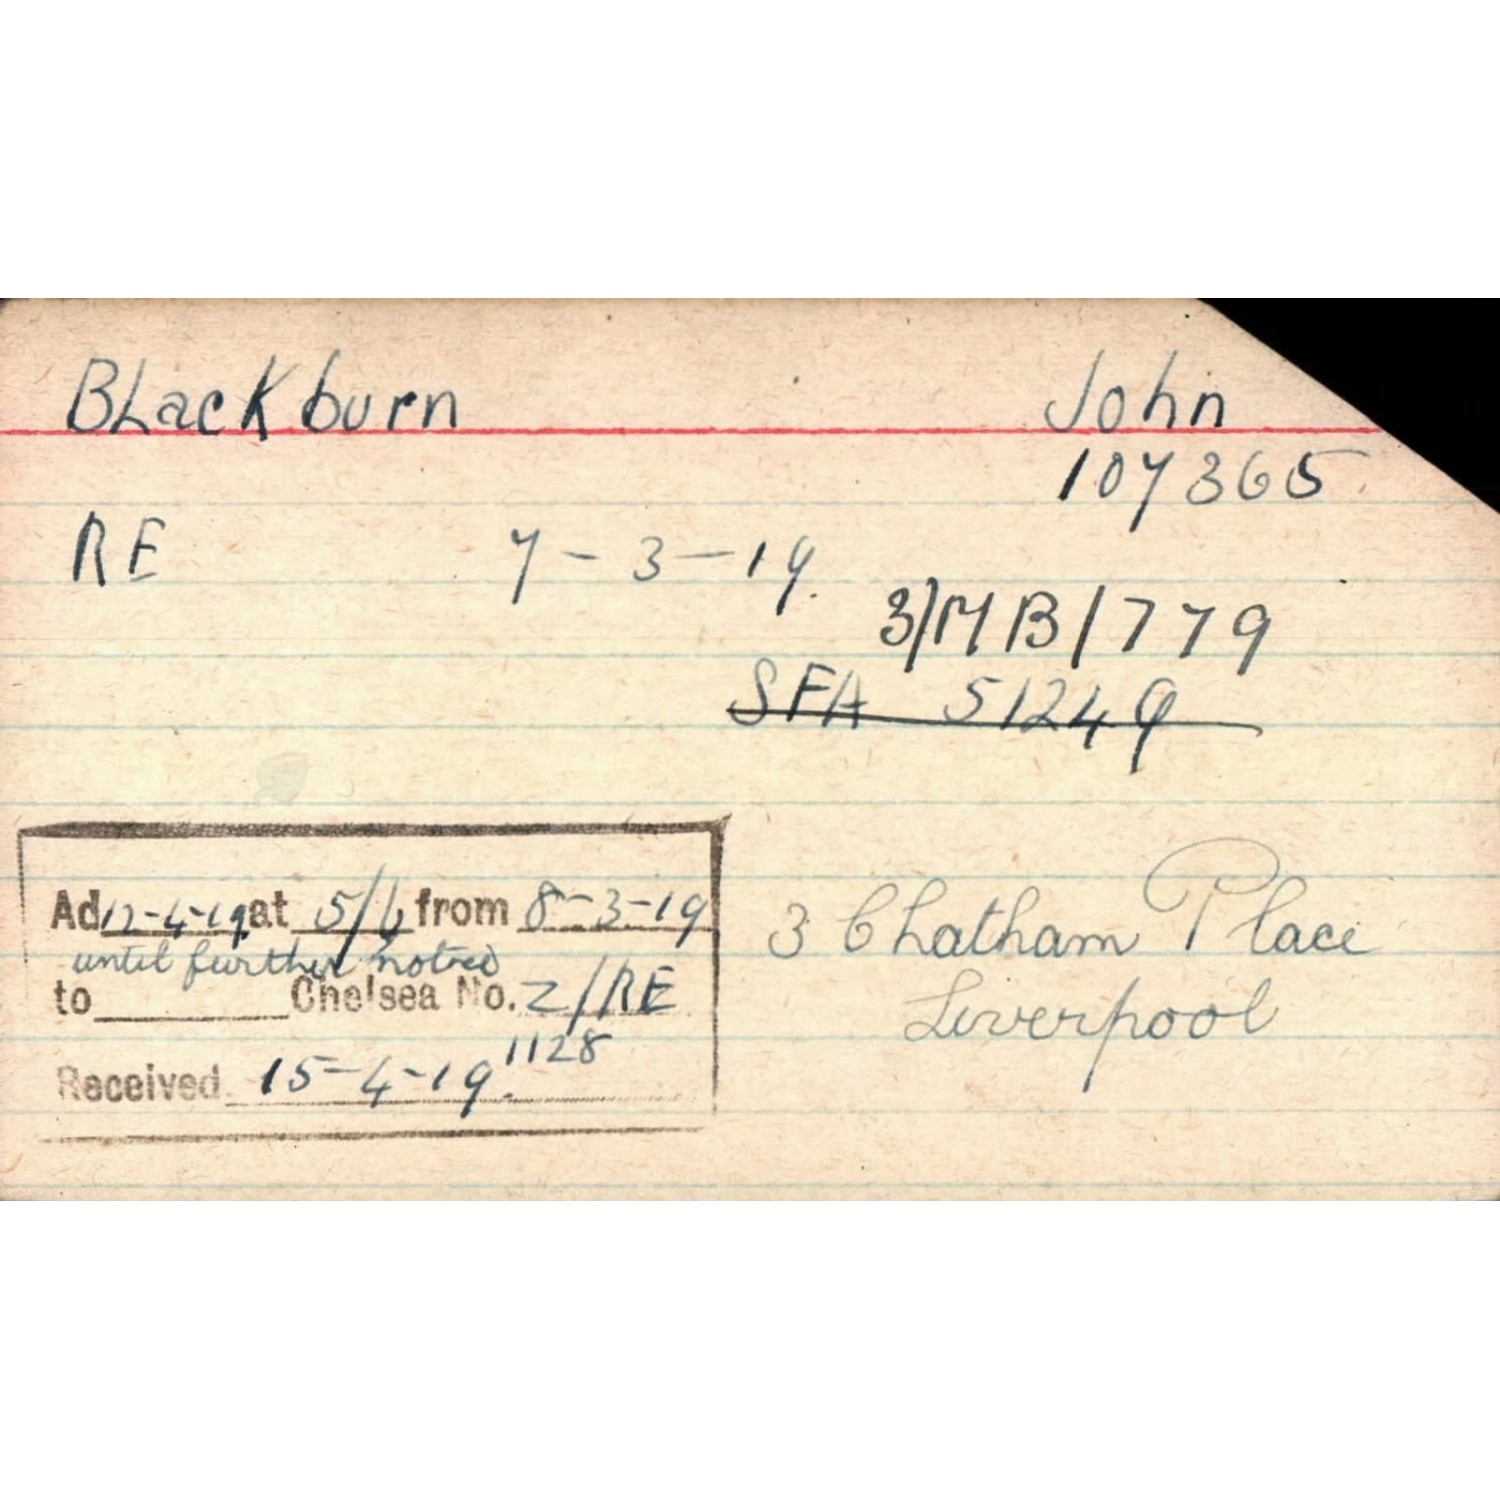 Blackburn John
107365
RE 7-3-19.
3/MB/779
SFA 51249
Ad 12-4-19. at 5/6 from 8-3-19
until further notice
to Chelsea No. 2/RE
1128
Received. 15-4-19.
3 Chatham Place
Liverpool